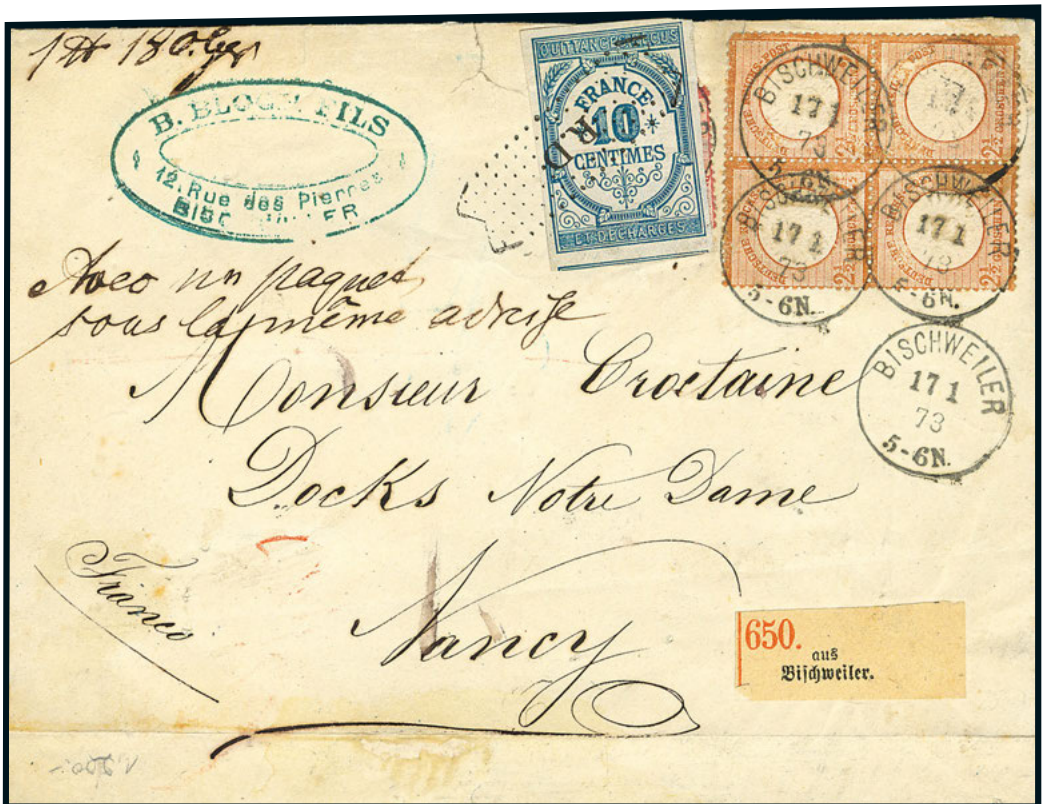 B. BLOCH FILS
12. Rue des Pierres
QUITTANCES REÇUS
FRANCE
10
CENTIMES
ET DÉCHARGES
RD
BISCHWEILER
17 1
73
5-6N.
BISCHWEILER
17 1
73
5-6N.
BISCHWEILER
17 1
73
5-6N.
BISCHWEILER
17 1
73
5-6N.
Avec un paquet
sous la même adresse
Monsieur Croctaine
Docks Notre Dame
Nancy
Franco
650.
aus
Bischweiler.